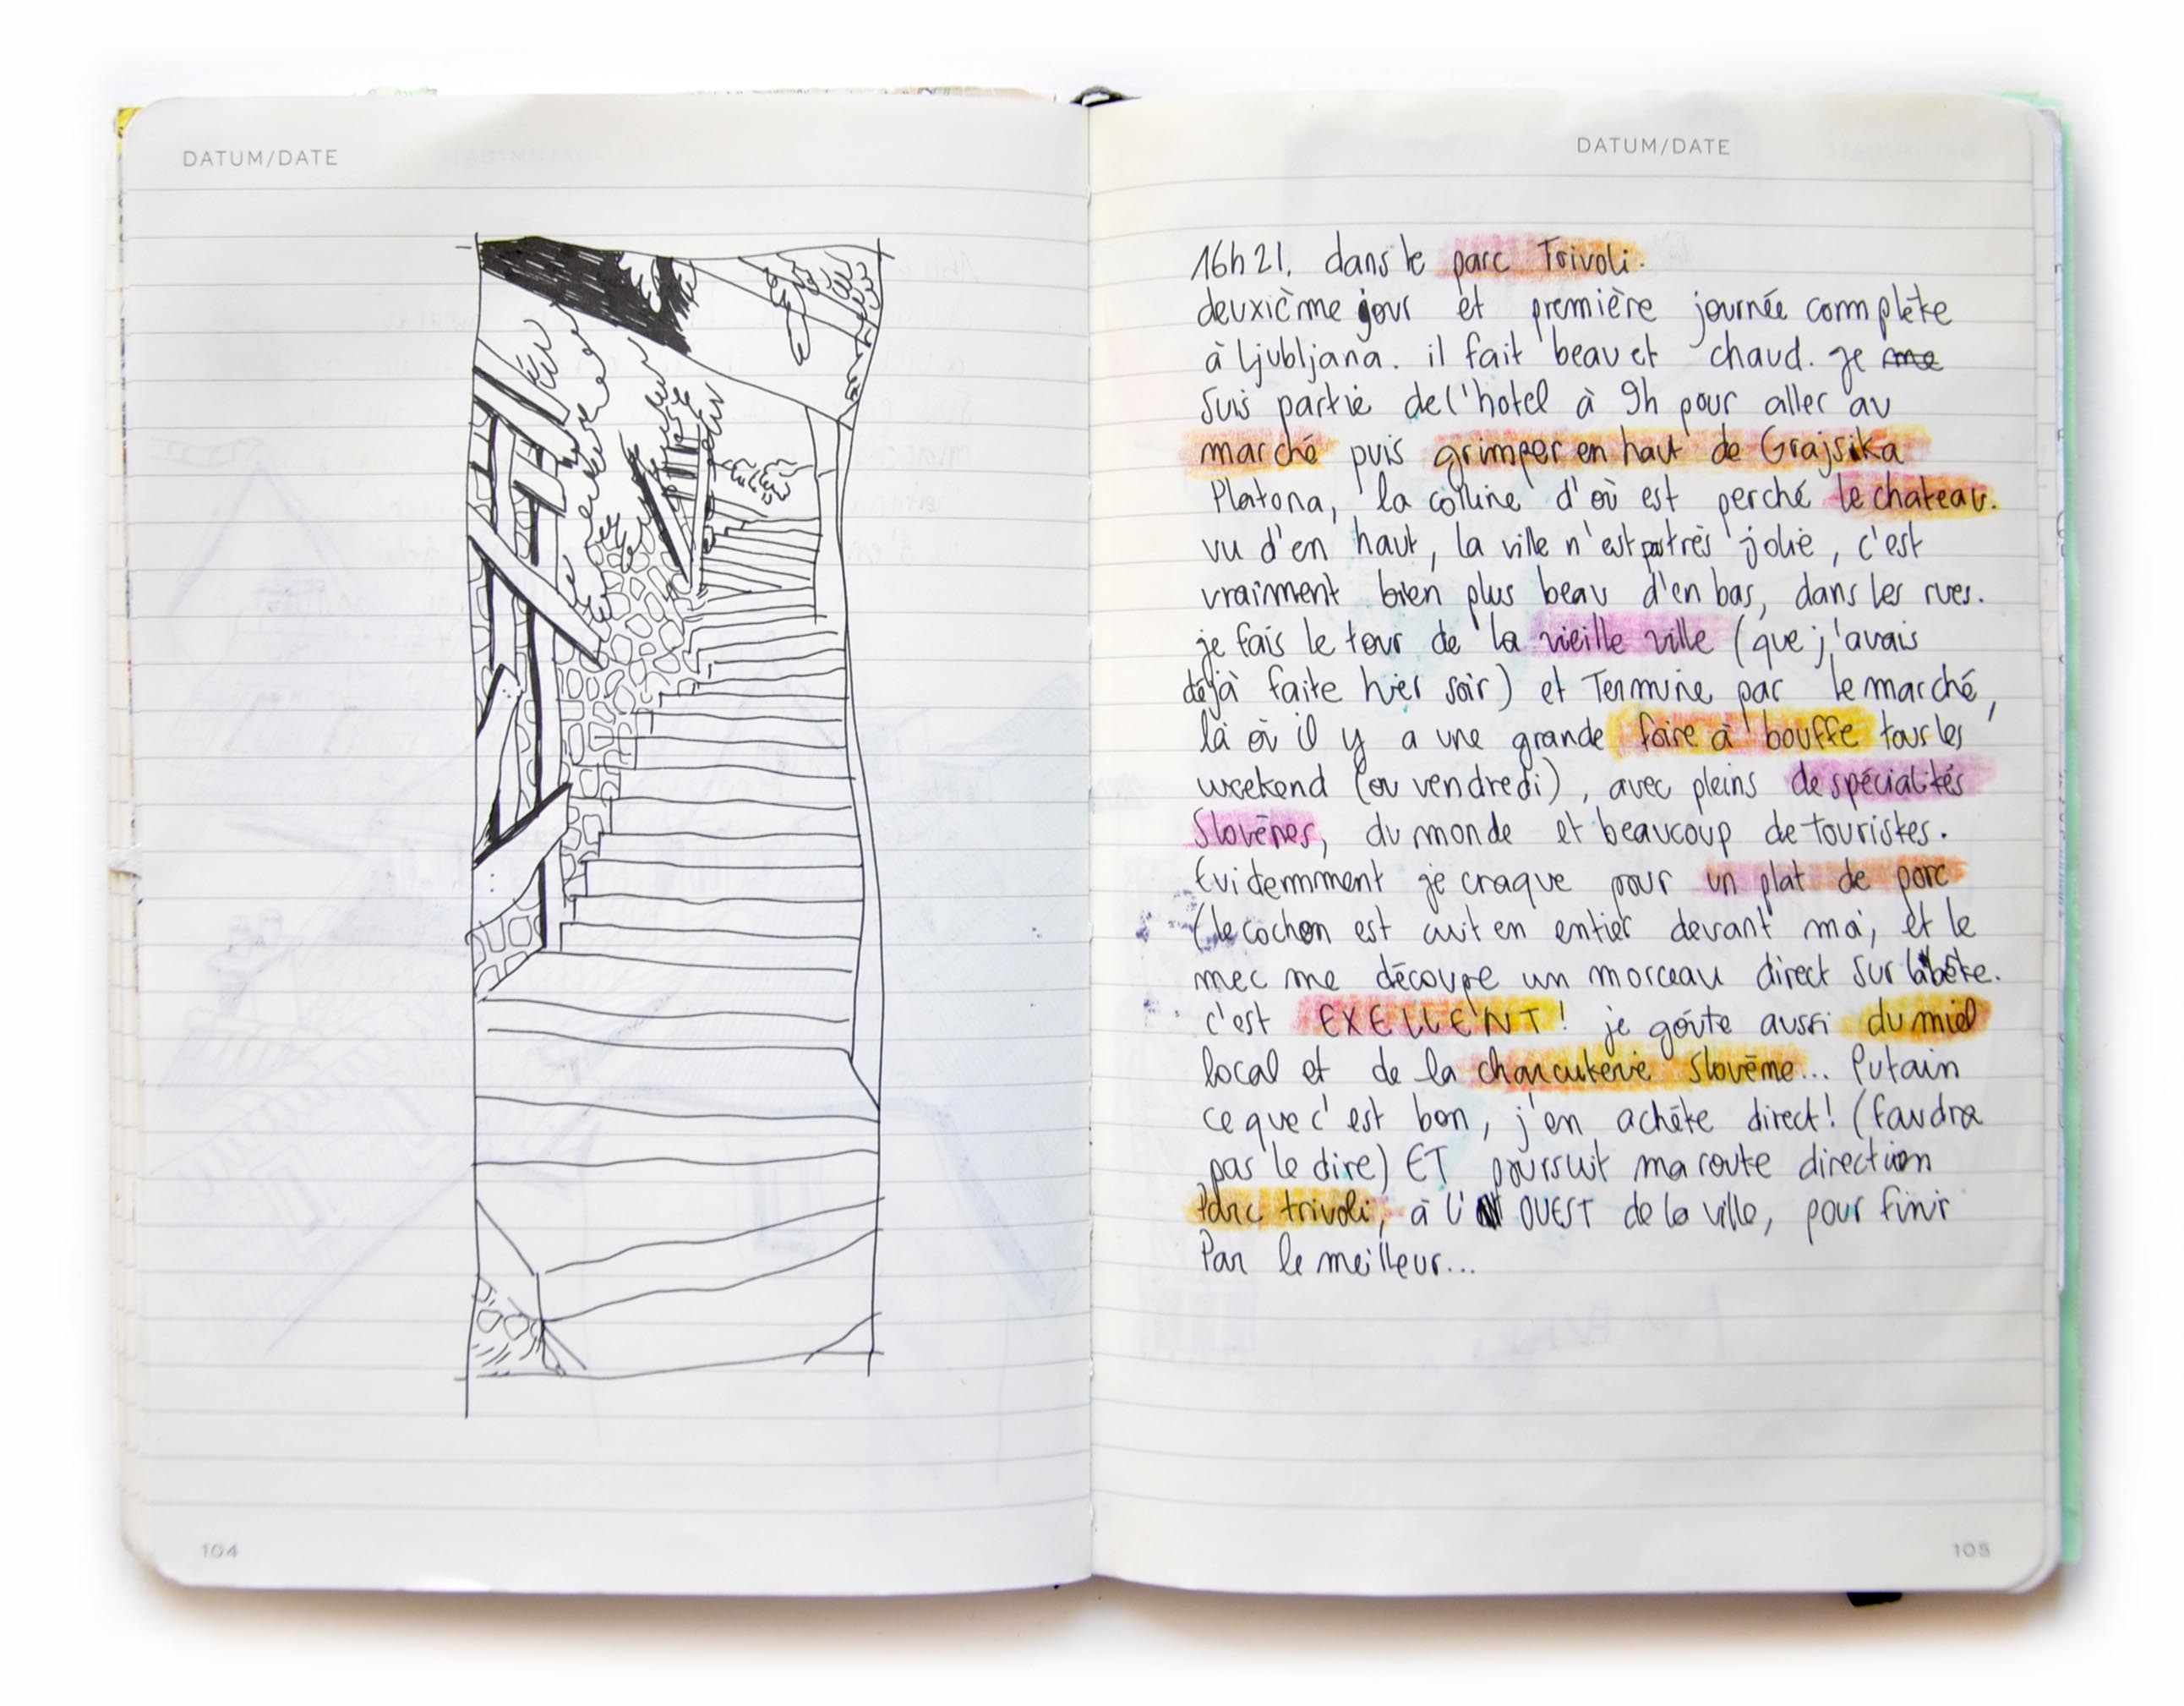 DATUM/DATE
104
DATUM/DATE
16h21. dans le parc Trivoli.
deuxième jour et première journée complète
à Ljubljana. il fait beau et chaud. je me
suis partie de l'hotel à 9h pour aller au
marché puis grimper en haut de Grajsika
Platona, la colline d'où est perché le chateau.
vu d'en haut, la ville n'est pas très jolie, c'est
vraiment bien plus beau d'en bas, dans les rues.
je fais le tour de la vieille ville (que j'avais
déjà faite hier soir) et Termine par le marché,
là où il y a une grande foire à bouffe tous les
weekend (ou vendredi), avec pleins de spécialités
Slovènes, du monde et beaucoup de touristes.
Evidemment je craque pour un plat de porc
(le cochon est cuit en entier devant moi, et le
mec me découpe un morceau direct sur la bête.
c'est EXELLENT! je goûte aussi du miel
local et de la charcuterie Slovène... Putain
ce que c'est bon, j'en achète direct! (faudra
pas le dire) ET poursuit ma route direction
Parc trivoli, à l'OUEST de la ville, pour finir
Par le meilleur...
105